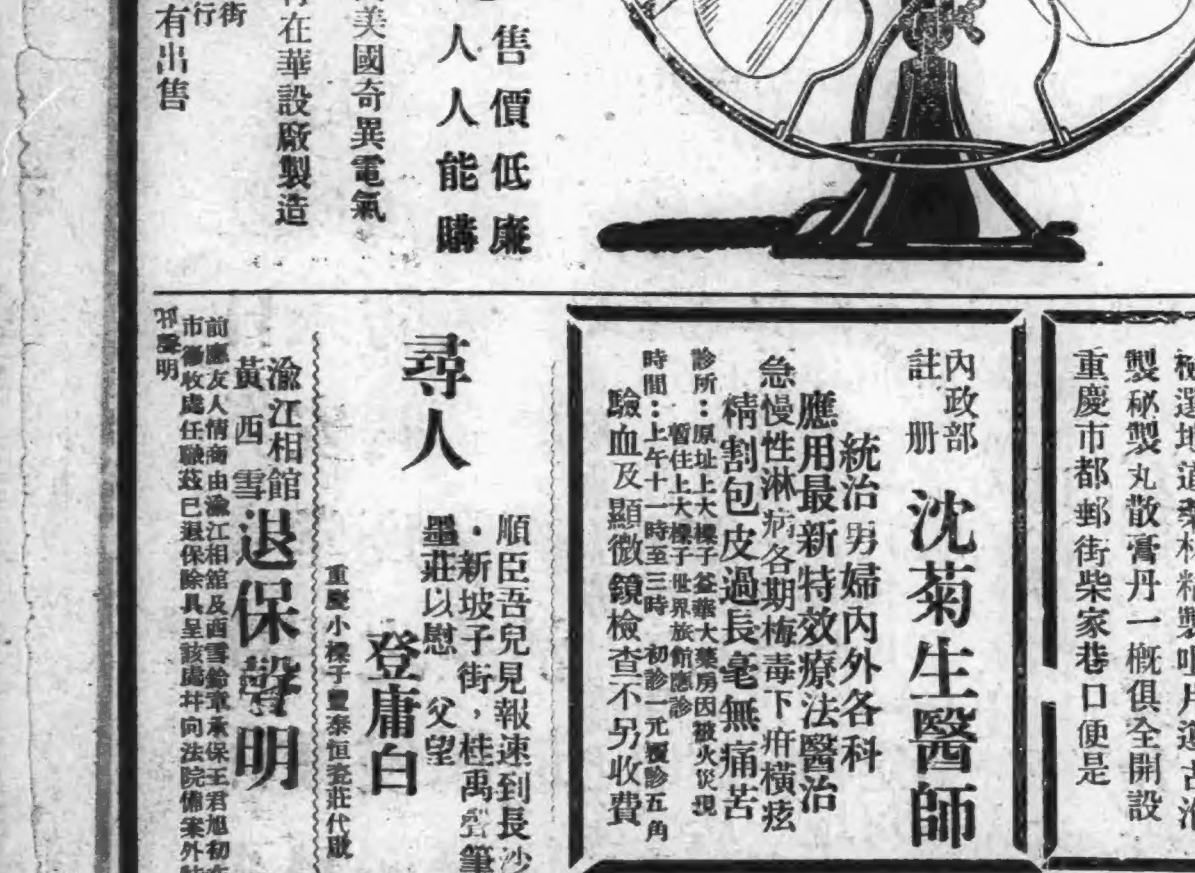 售價低廉
人人能購
美國奇異電氣
在華設廠製造
街
行
有出售
製秘製丸散膏丹一概俱全開設
重慶市都郵街柴家巷口便是
內政部
註册
沈菊生醫師
統治男婦內外各科
應用最新特效療法醫治
急慢性淋病各期梅毒下疳橫痃
精割包皮過長毫無痛苦
診所：原址上大樑子益華大藥房因被火災現
暫住上大樑子世界旅館應診
時間：上午十一時至三時 初診一元覆診五角
驗血及顯微鏡檢查不另收費
尋人
順臣吾兒見報速到長沙
·新坡子街，桂禹聲筆
墨莊以慰 父望
登庸白
重慶小樑子豐泰恒瓷莊代啟
渝江相館
黃西雪
退保聲明
前應友人情商由渝江相館及西雪給章承保王君旭初在
市徵收處任職茲已退保除具呈該處幷向法院備案外特
聲明